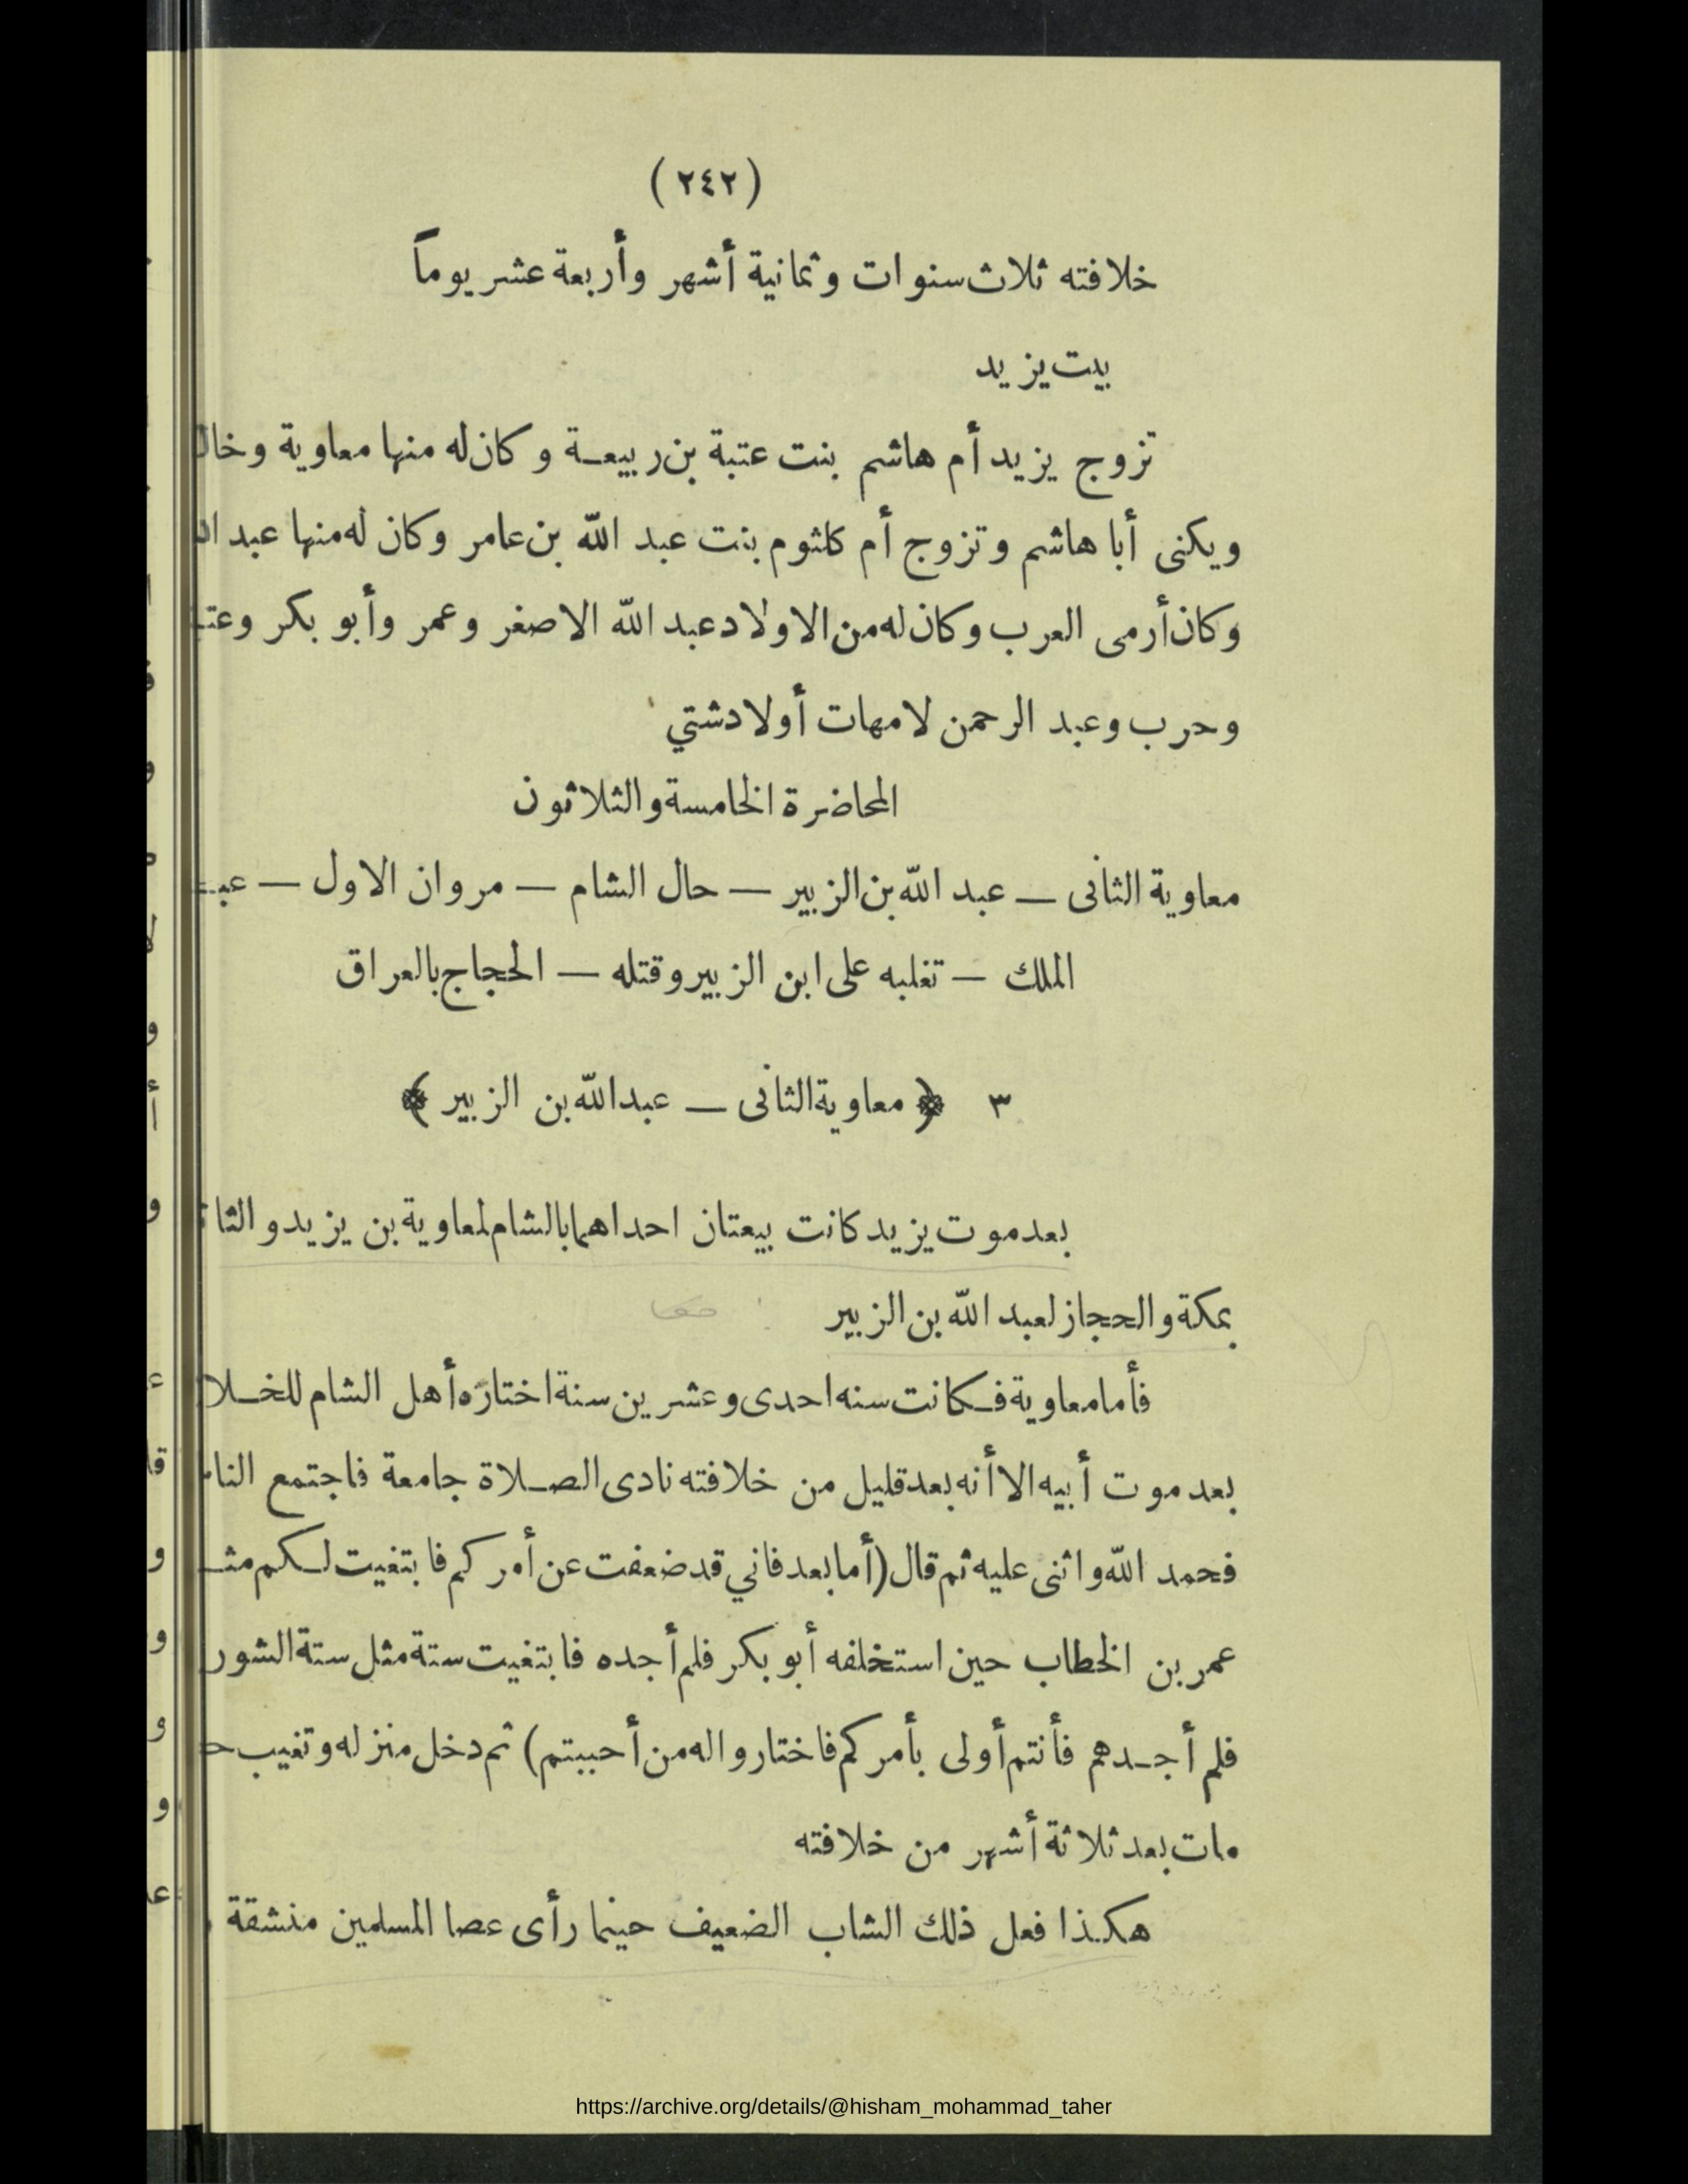 (٢٤٢)
خلافته ثلاث سنوات وثمانية أشهر وأربعة عشر يوماً
بيت يزيد
تزوج يزيد أم هاشم بنت عتبة بن ربيعة وكان له منها معاوية
ويكنى أبا هاشم وتزوج أم كلثوم بنت عبد الله بن عامر وكان له منها عبد
وكان أرمى العرب وكان له من الاولاد عبد الله الاصغر وعمر وأبو بكر
وحرب وعبد الرحمن لامهات أولاد شتي
المحاضرة الخامسة والثلاثون
معاوية الثانى — عبد الله بن الزبير — حال الشام — مروان الاول —
الملك — تغلبه على ابن الزبير وقتله — الحجاج بالعراق
٣ ﴿ معاوية الثانى — عبد الله بن الزبير ﴾
بعد موت يزيد كانت بيعتان احداهما بالشام لمعاوية بن يزيد
بمكة والحجاز لعبد الله بن الزبير
فأما معاوية فكانت سنه احدى وعشرين سنة اختاره أهل الشام
بعد موت أبيه الا أنه بعد قليل من خلافته نادى الصلاة جامعة فاجتمع
فحمد الله واثنى عليه ثم قال (أما بعد فاني قد ضعفت عن أمركم فابتغيت لكم
عمر بن الخطاب حين استخلفه أبو بكر فلم أجده فابتغيت ستة مثل ستة
فلم أجدهم فأنتم أولى بأمركم فاختاروا له من أحببتم) ثم دخل منزله وتغيب
مات بعد ثلاثة أشهر من خلافته
هكذا فعل ذلك الشاب الضعيف حينما رأى عصا المسلمين منشقة
https://archive.org/details/@hisham_mohammad_taher